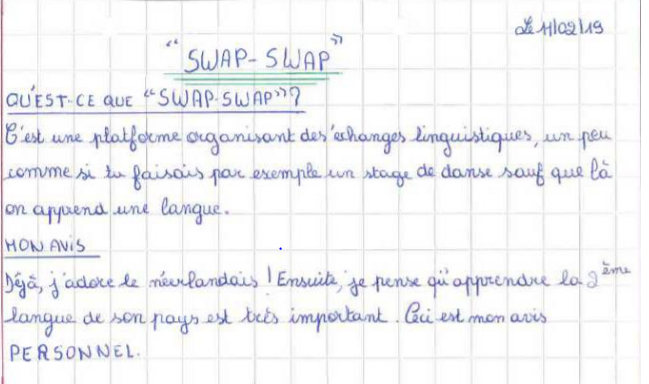 Le 11/02/19
"SWAP-SWAP"
QU'EST-CE QUE "SWAP-SWAP"?
C'est une platforme organisant des échanges linguistiques, un peu
comme si tu faisais par exemple un stage de danse sauf que là
on apprend une langue.
MON AVIS
Déjà, j'adore le néerlandais ! Ensuite, je pense qu'apprendre la 2ème
langue de son pays est très important. Ceci est mon avis
PERSONNEL.